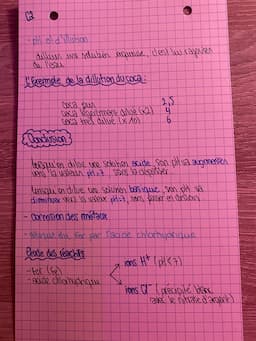 C2
- pH et dilution
diluer une solution aqueuse, c'est lui rajouter
de l'eau
L'exemple de la dilution du coca :
coca pur 2,5
coca légèrement dilué (x2) 4
coca très dilué (x 10) 6
Conclusion
Lorsqu'on dilue une solution acide, son pH va augmenter
vers la valeur pH=7, sans la dépasser
Lorsqu'on dilue une solution basique, son pH va
diminuer vers la valeur pH=7, sans passer en dessous
- Corrosion des métaux
du fer par l'acide chlorhydrique
des réactifs
- fer (Fe)
- acide chlorhydrique
ions H+ (pH<7)
ions Cl- (précipité blanc
avec le nitrate d'argent)